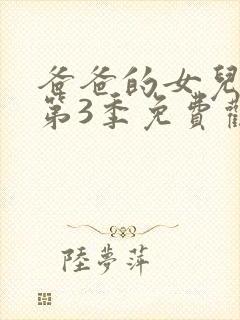 爸爸的女兒
第3季免費觀
陸夢萍